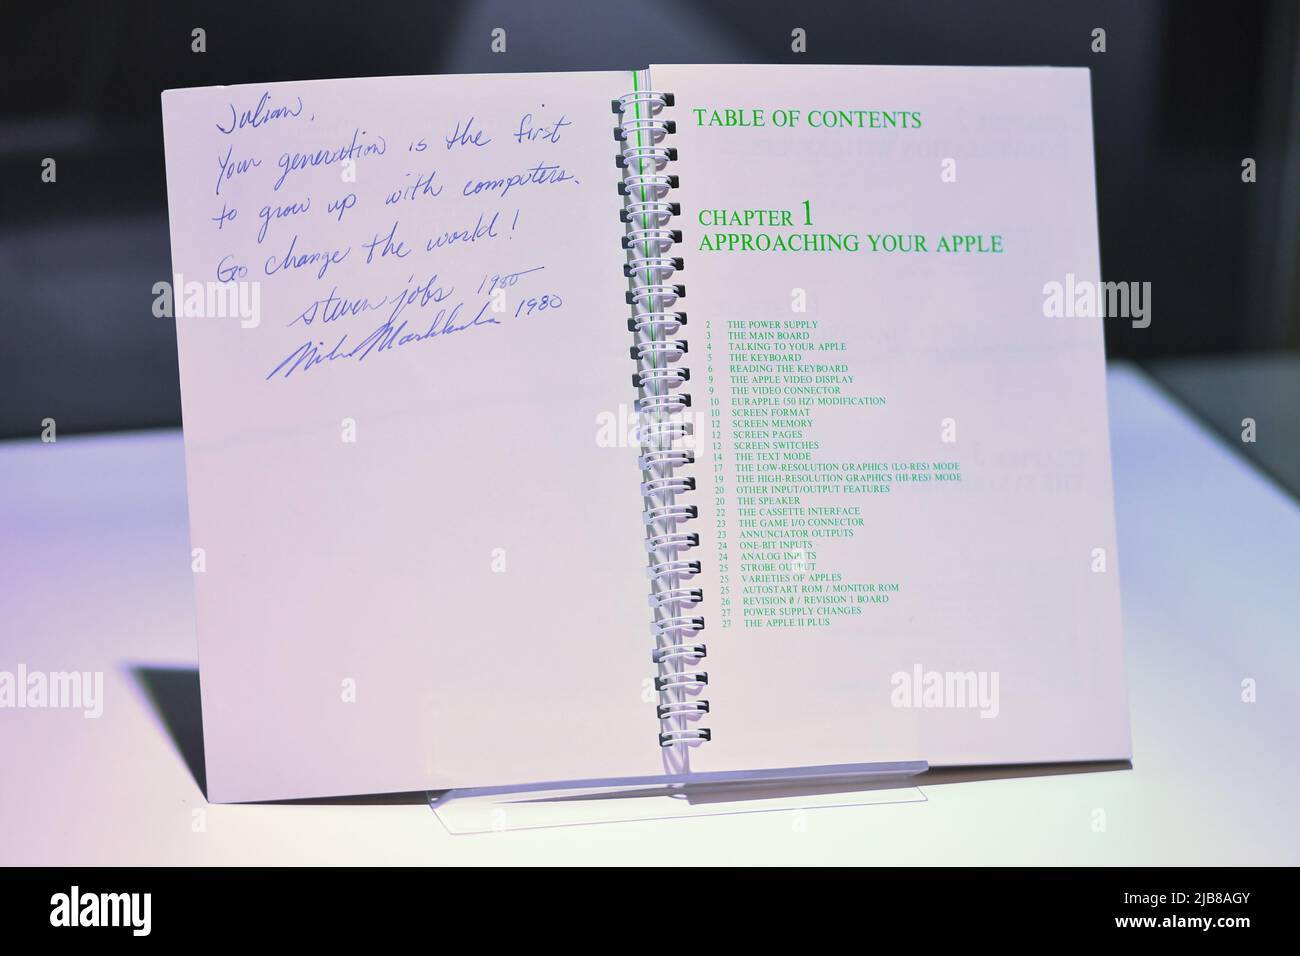 Julian,
Your generation is the first
to grow up with computers.
Go change the world!
steven jobs 1980
Mike Markkula 1980
TABLE OF CONTENTS
CHAPTER 1
APPROACHING YOUR APPLE
2 THE POWER SUPPLY
3 THE MAIN BOARD
4 TALKING TO YOUR APPLE
5 THE KEYBOARD
6 READING THE KEYBOARD
9 THE APPLE VIDEO DISPLAY
9 THE VIDEO CONNECTOR
10 EURAPPLE (50 HZ) MODIFICATION
10 SCREEN FORMAT
12 SCREEN MEMORY
12 SCREEN PAGES
12 SCREEN SWITCHES
14 THE TEXT MODE
17 THE LOW-RESOLUTION GRAPHICS (LO-RES) MODE
19 THE HIGH-RESOLUTION GRAPHICS (HI-RES) MODE
20 OTHER INPUT/OUTPUT FEATURES
20 THE SPEAKER
22 THE CASSETTE INTERFACE
23 THE GAME I/O CONNECTOR
23 ANNUNCIATOR OUTPUTS
24 ONE-BIT INPUTS
24 ANALOG INPUTS
25 STROBE OUTPUT
25 VARIETIES OF APPLES
25 AUTOSTART ROM / MONITOR ROM
26 REVISION 0 / REVISION 1 BOARD
27 POWER SUPPLY CHANGES
27 THE APPLE II PLUS
alamy
Image ID: 2JB8AGY
www.alamy.com